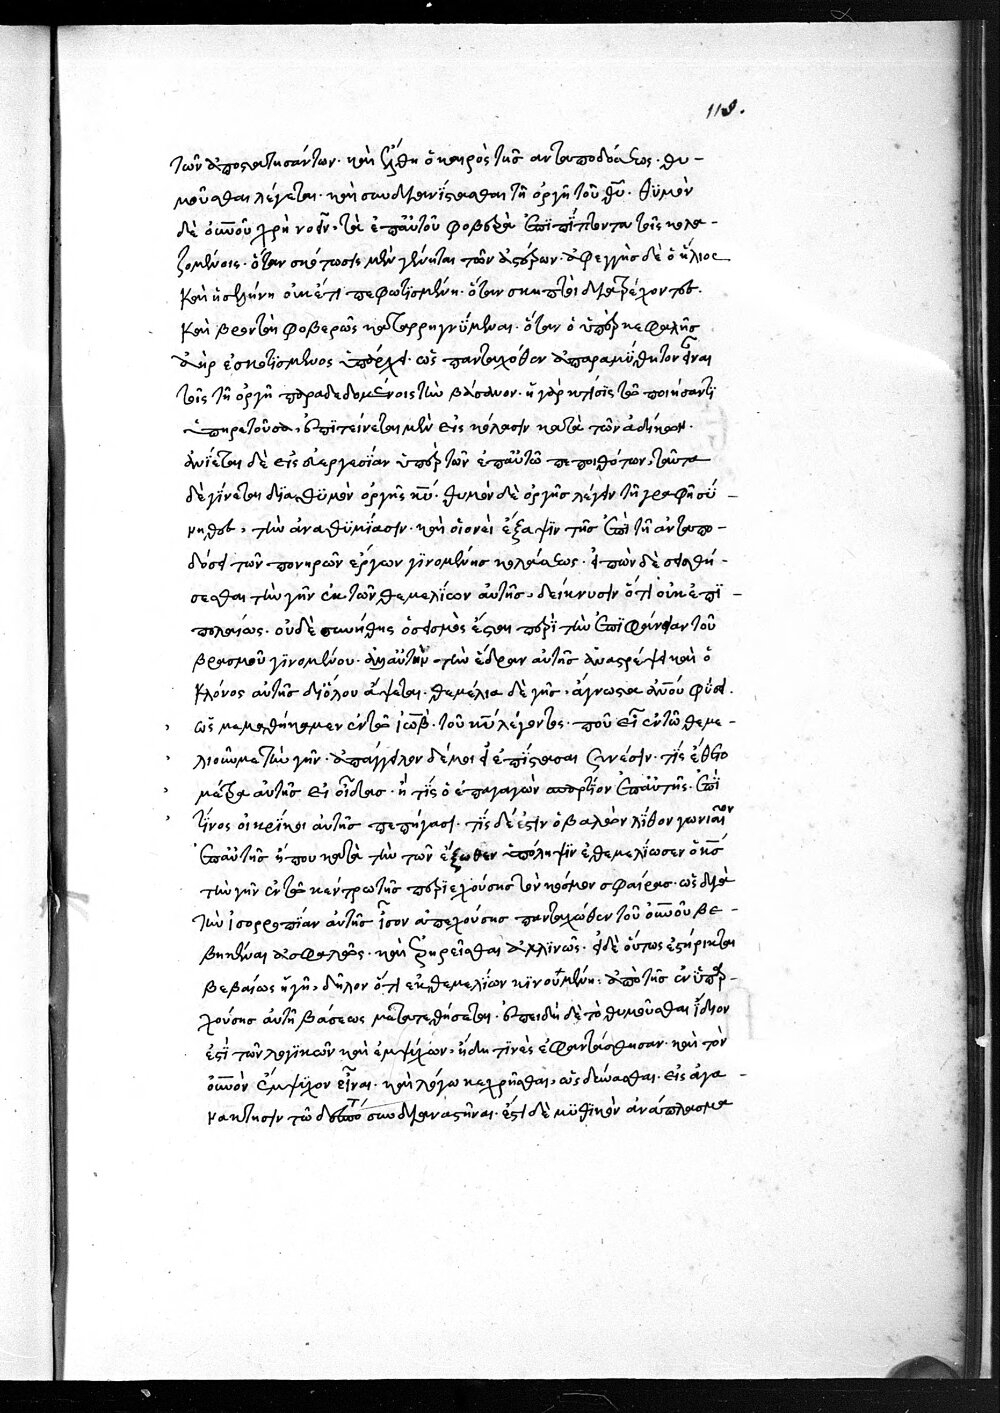 118.
τῶν ἀποστατησάντων. καὶ ἤχθη ὁ καιρὸς τῆς ἀνταποδόσεως. θυ-
μοῦσθαι λέγεται. καὶ συνδιανίστασθαι τῇ ὀργῇ τοῦ θυ. θυμὸν
δὲ οὐνοῦ χρὴ νοεῖν, τὰ ἐπ αὐτοῦ φοβερὰ ἐπιπίπτοντα τοῖς κολα-
ζομένοις. ὅταν σκότωσις μὲν γένηται τῶν ἀστέρων. ἀφεγγὴς δὲ ὁ ἥλιος
καὶ ἡ σελήνη οὐκέτι πεφωτισμένη. ὅταν σκηπτοὶ διατρέχοντες.
καὶ βρονταὶ φοβερῶς καταρρηγνύμεναι. ὅταν ὁ ὑπὲρ κεφαλῆς
ἀὴρ ἐσκοτισμένος ὑπάρχει. ὡς πανταχόθεν ἀπαραμύθητον εἶναι
τοῖς τῇ ὀργῇ παραδεδομένοις τὴν βάσανον. ἡ γὰρ κτίσις τῷ ποιήσαντι
ὑπηρετοῦσα, ἐπιτείνεται μὲν εἰς κόλασιν κατὰ τῶν ἀδίκων.
ἀνίεται δὲ εἰς εὐεργεσίαν ὑπὲρ τῶν ἐπ αὐτῷ πεποιθότων, ταῦτα
δὲ γίνεται διὰ θυμὸν ὀργῆς κυ. θυμὸν δὲ ὀργῆς λέγειν τῇ γραφῇ σύ-
νηθες, τὴν ἀναθυμίασιν. καὶ οἱονεὶ ἔξαψιν τῆς ἐπὶ τῇ ἀνταπο-
δόσει τῶν πονηρῶν ἔργων γινομένης κολάσεως. εἰπὼν δὲ σεισθή-
σεσθαι τὴν γῆν ἐκ τῶν θεμελίων αὐτῆς, δείκνυσιν ὅτι οὐκ ἐπι-
πολαίως. οὐδὲ συνήθης ὁ σεισμὸς ἔσται περὶ τὴν ἐπιφάνειαν τοῦ
βρασμοῦ γινομένου. ἀλλ αὐτὴν τὴν ἕδραν αὐτῆς ἀναστρέψει καὶ ὁ
κλόνος αὐτῆς διόλου ἅψεται. θεμέλια δὲ γῆς, ἄγνωστα ἀνου φύσει.
ὡς μεμαθήκαμεν ἐν τῷ ἰώβ. τοῦ κυ λέγοντος. ποῦ εἶ ἐν τῷ θεμε-
λιοῦν με τὴν γῆν. ἀπάγγειλον δέ μοι εἰ ἐπίστασαι σύνεσιν. τίς ἔθετο
μέτρα αὐτῆς εἰ οἶδας. ἢ τίς ὁ ἐπαγαγὼν σπαρτίον ἐπ αὐτῆς. ἐπὶ
τίνος οἱ κρίκοι αὐτῆς πεπήγασι. τίς δέ ἐστιν ὁ βαλὼν λίθον γωνιαῖον
ἐπ αὐτῆς ἤπου κατὰ τὴν τῶν ἔξωθεν ὑπόληψιν ἐθεμελίωσεν ὁ κς
τὴν γῆν ἐν τῷ κέντρῳ τῆς περιεχούσης τὸν κόσμον σφαίρας. ὡς διὰ
τὴν ἰσορροπίαν αὐτῆς ἴσον ἀπεχούσης πανταχόθεν τοῦ οὐνοῦ βε-
βηκέναι ἀσφαλῶς. καὶ στηρεῖσθαι ἀκλινῶς. εἰ δὲ οὕτως ἐστήρικται
βεβαίως ἡ γῆ, δῆλον ὅτι ἐκ θεμελίων κινουμένη, ἀπὸ τῆς ἐνυπαρ-
χούσης αὐτῇ βάσεως μετατεθήσεται. ἐπειδὴ δὲ τὸ θυμοῦσθαι ἴδιον
ἐστὶ τῶν λογικῶν καὶ ἐμψύχων, ἤδη τινὲς ἐφαντάσθησαν. καὶ τὸν
οὐνὸν ἔμψυχον εἶναι. καὶ λόγῳ κεχρῆσθαι, ὡς δύνασθαι. εἰς ἀγα-
νάκτησιν τῷ δεσπότῃ συνδιαναστῆναι. ἔστι δὲ μυθικὸν ἀνάπλασμα